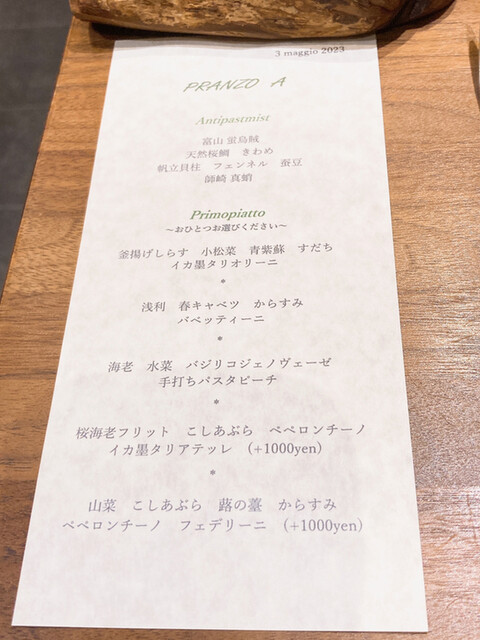 3 maggio 2023
PRANZO A
Antipastmist
富山 蛍烏賊
天然桜鯛 きわめ
帆立貝柱 フェンネル 蚕豆
師崎 真蛸
Primopiatto
～おひとつお選びください～
釜揚げしらす 小松菜 青紫蘇 すだち
イカ墨タリオリーニ
*
浅利 春キャベツ からすみ
バベッティーニ
*
海老 水菜 バジリコジェノヴェーゼ
手打ちパスタピーチ
*
桜海老フリット こしあぶら ペペロンチーノ
イカ墨タリアテッレ (+1000yen)
*
山菜 こしあぶら 蕗の薹 からすみ
ペペロンチーノ フェデリーニ (+1000yen)